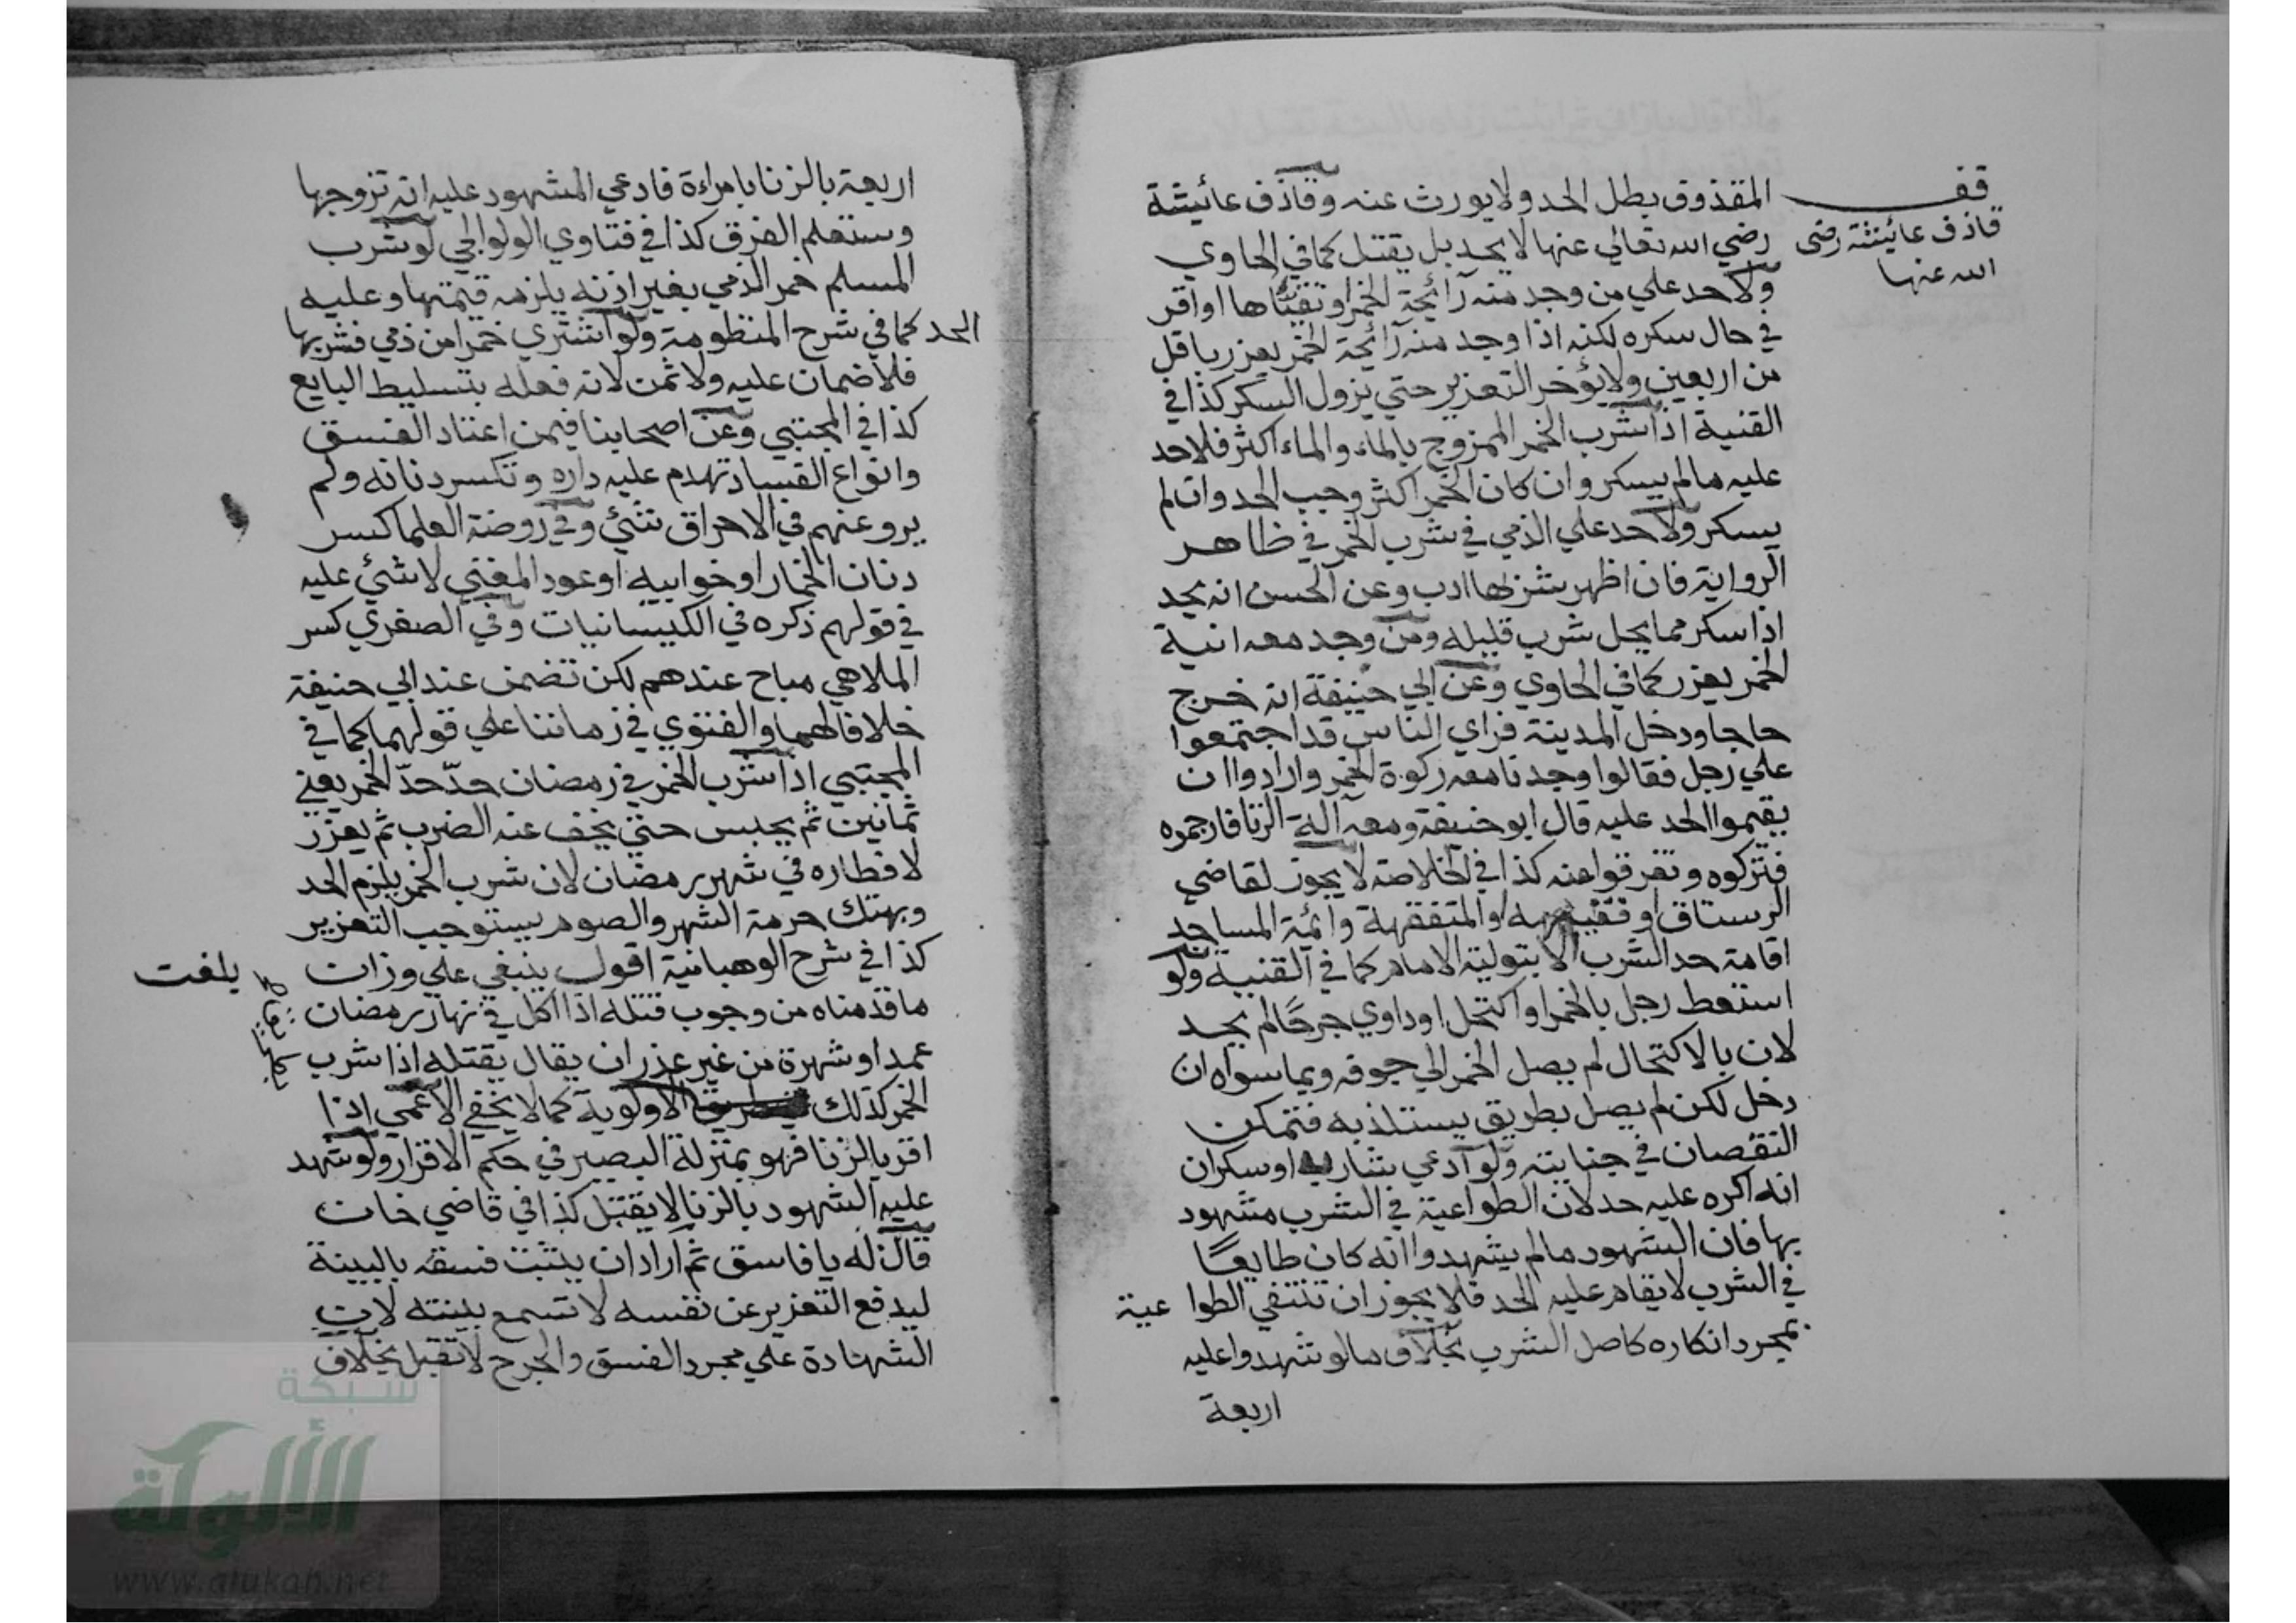 قف
قاذف عائيشة رضى
الله عنها
المقذوق بطل الحد ولا يورث عنه وقاذف عائيشة
رضي الله تعالي عنها لا يحد بل يقتل كما في الحاوي
ولا حد علي من وجد منه رآئحة الخمر او تقيّاها او اقر
في حال سكره لكنه اذا وجد منه رآئحة الخمر يعزر باقل
من اربعين ولا يؤخر التعزير حتي يزول السكر كذا في
القنية اذا شرب الخمر الممزوج بالماء والماء اكثر فلا حد
عليه ما لم يسكر وان كان الخمر اكثر وجب الحد وان لم
يسكر ولا حد علي الذمي في شرب الخمر في ظاهر
الرواية فان اظهر شربها ادب وعن الحسن انه يحد
اذا سكر مما يحل شرب قليله ومن وجد معه انية
الخمر يعزر كما في الحاوي وعن ابي حنيفة انه خرج
حاجا ودخل المدينة فراي الناس قد اجتمعوا
علي رجل فقالوا وجدنا معه ركوة الخمر وارادوا ان
يقيموا الحد عليه قال ابو حنيفة ومعه آلة الزنا فارجموه
فتركوه وتفرقوا عنه كذا في الخلاصة لا يجوز لقاضي
الرستاق او فقيهه او المتفقهة وائمة المساجد
اقامة حد الشرب الا بتولية الامام كما في القنية ولو
استعط رجل بالخمر او اكتحل او داوي جرحًا لم يحد
لان بالاكتحال لم يصل الخمر الي جوفه وبما سواه ان
دخل لكن لم يصل بطريق يستلذ به فتمكن
النقصان في جنايته ولو ادعي شارب او سكران
انه اكره عليه حد لان الطواعية في الشرب مشهود
بها فان الشهود ما لم يشهدوا انه كان طايعًا
في الشرب لا يقام عليه الحد فلا يجوز ان تنتفي الطوا عية
بمجرد انكاره كاصل الشرب بخلاف ما لو شهدوا عليه
اربعة
اربعة بالزنا بامراءة فادعي المشهود عليه انه تزوجها
وستعلم الفرق كذا في فتاوي الولوالجي لو شرب
المسلم خمر الذمي بغير اذنه يلزمه قيمتها وعليه
الحد كما في شرح المنظومة ولو اشتري خمرا من ذمي فشربها
فلا ضمان عليه ولا ثمن لانه فعله بتسليط البايع
كذا في المجتبي وعن اصحابنا فيمن اعتاد الفسق
وانواع الفساد تهدم عليه داره وتكسر دنانه ولم
يرو عنهم في الاحراق شئ وفي روضة العلما كسر
دنان الخمار او خوابيه او عود المغني لا شئ عليه
في قولهم ذكره في الكيسانيات وفي الصغري كسر
الملاهي مباح عندهم لكن تضمن عند ابي حنيفة
خلافا لهما والفتوي في زماننا علي قولهما كما في
المجتبي اذا شرب الخمر في رمضان حدّ حدّ الخمر يعني
ثمانين ثم يحبس حتي يخف عنه الضرب ثم يعزر
لافطاره في شهر رمضان لان شرب الخمر يلزم الحد
وبهتك حرمة الشهر والصوم يستوجب التعزير
كذا في شرح الوهبانية اقول ينبغي علي وزان
ما قدمناه من وجوب قتله اذا اكل في نهار رمضان
عمدا وشهرة من غير عذر ان يقال يقتله اذا شرب
الخمر كذلك بطريق الاولوية كما لا يخفي الاعمي اذا
اقر بالزنا فهو بمنزلة البصير في حكم الاقرار ولو شهد
عليه الشهود بالزنا لا يقبل كذا في قاضي خان
قال له يا فاسق ثم اراد ان يثبت فسقه بالبينة
ليدفع التعزير عن نفسه لا تسمع بينته لان
الشهادة علي مجرد الفسق والجرح لا تقبل بخلاف
بلغت
شبكة
الألوكة
www.alukah.net